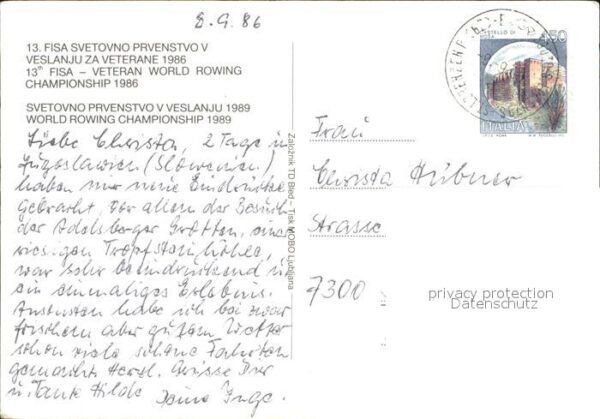 8.9.86
13. FISA SVETOVNO PRVENSTVO V
VESLANJU ZA VETERANE 1986
13th FISA – VETERAN WORLD ROWING
CHAMPIONSHIP 1986
SVETOVNO PRVENSTVO V VESLANJU 1989
WORLD ROWING CHAMPIONSHIP 1989
Liebe Christa, 2 Tage in
Jugoslawien (Slowenien)
haben mir neue Eindrücke
gebracht, vor allem der Besuch
der Adelsberger Grotten, eine
riesigen Tropfsteinhöhle,
war sehr beeindruckend u.
ein einmaliges Erlebnis.
Ansonsten habe ich bei zwar
frischem aber gutem Wetter
schon viele schöne Fahrten
gemacht. Herzl. Grüsse Dir
u. Tante Hilde Deine Inge.
Založnik TD Bled - Tisk MOBO Ljubljana
CASTELLO DI
450
ITALIA
Frau
Christa Hübner
Strasse
7300
privacy protection
Datenschutz